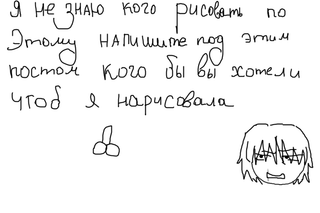 Я не знаю кого рисовать по
Этому напишите под этим
постом кого бы вы хотели
чтоб я нарисовала